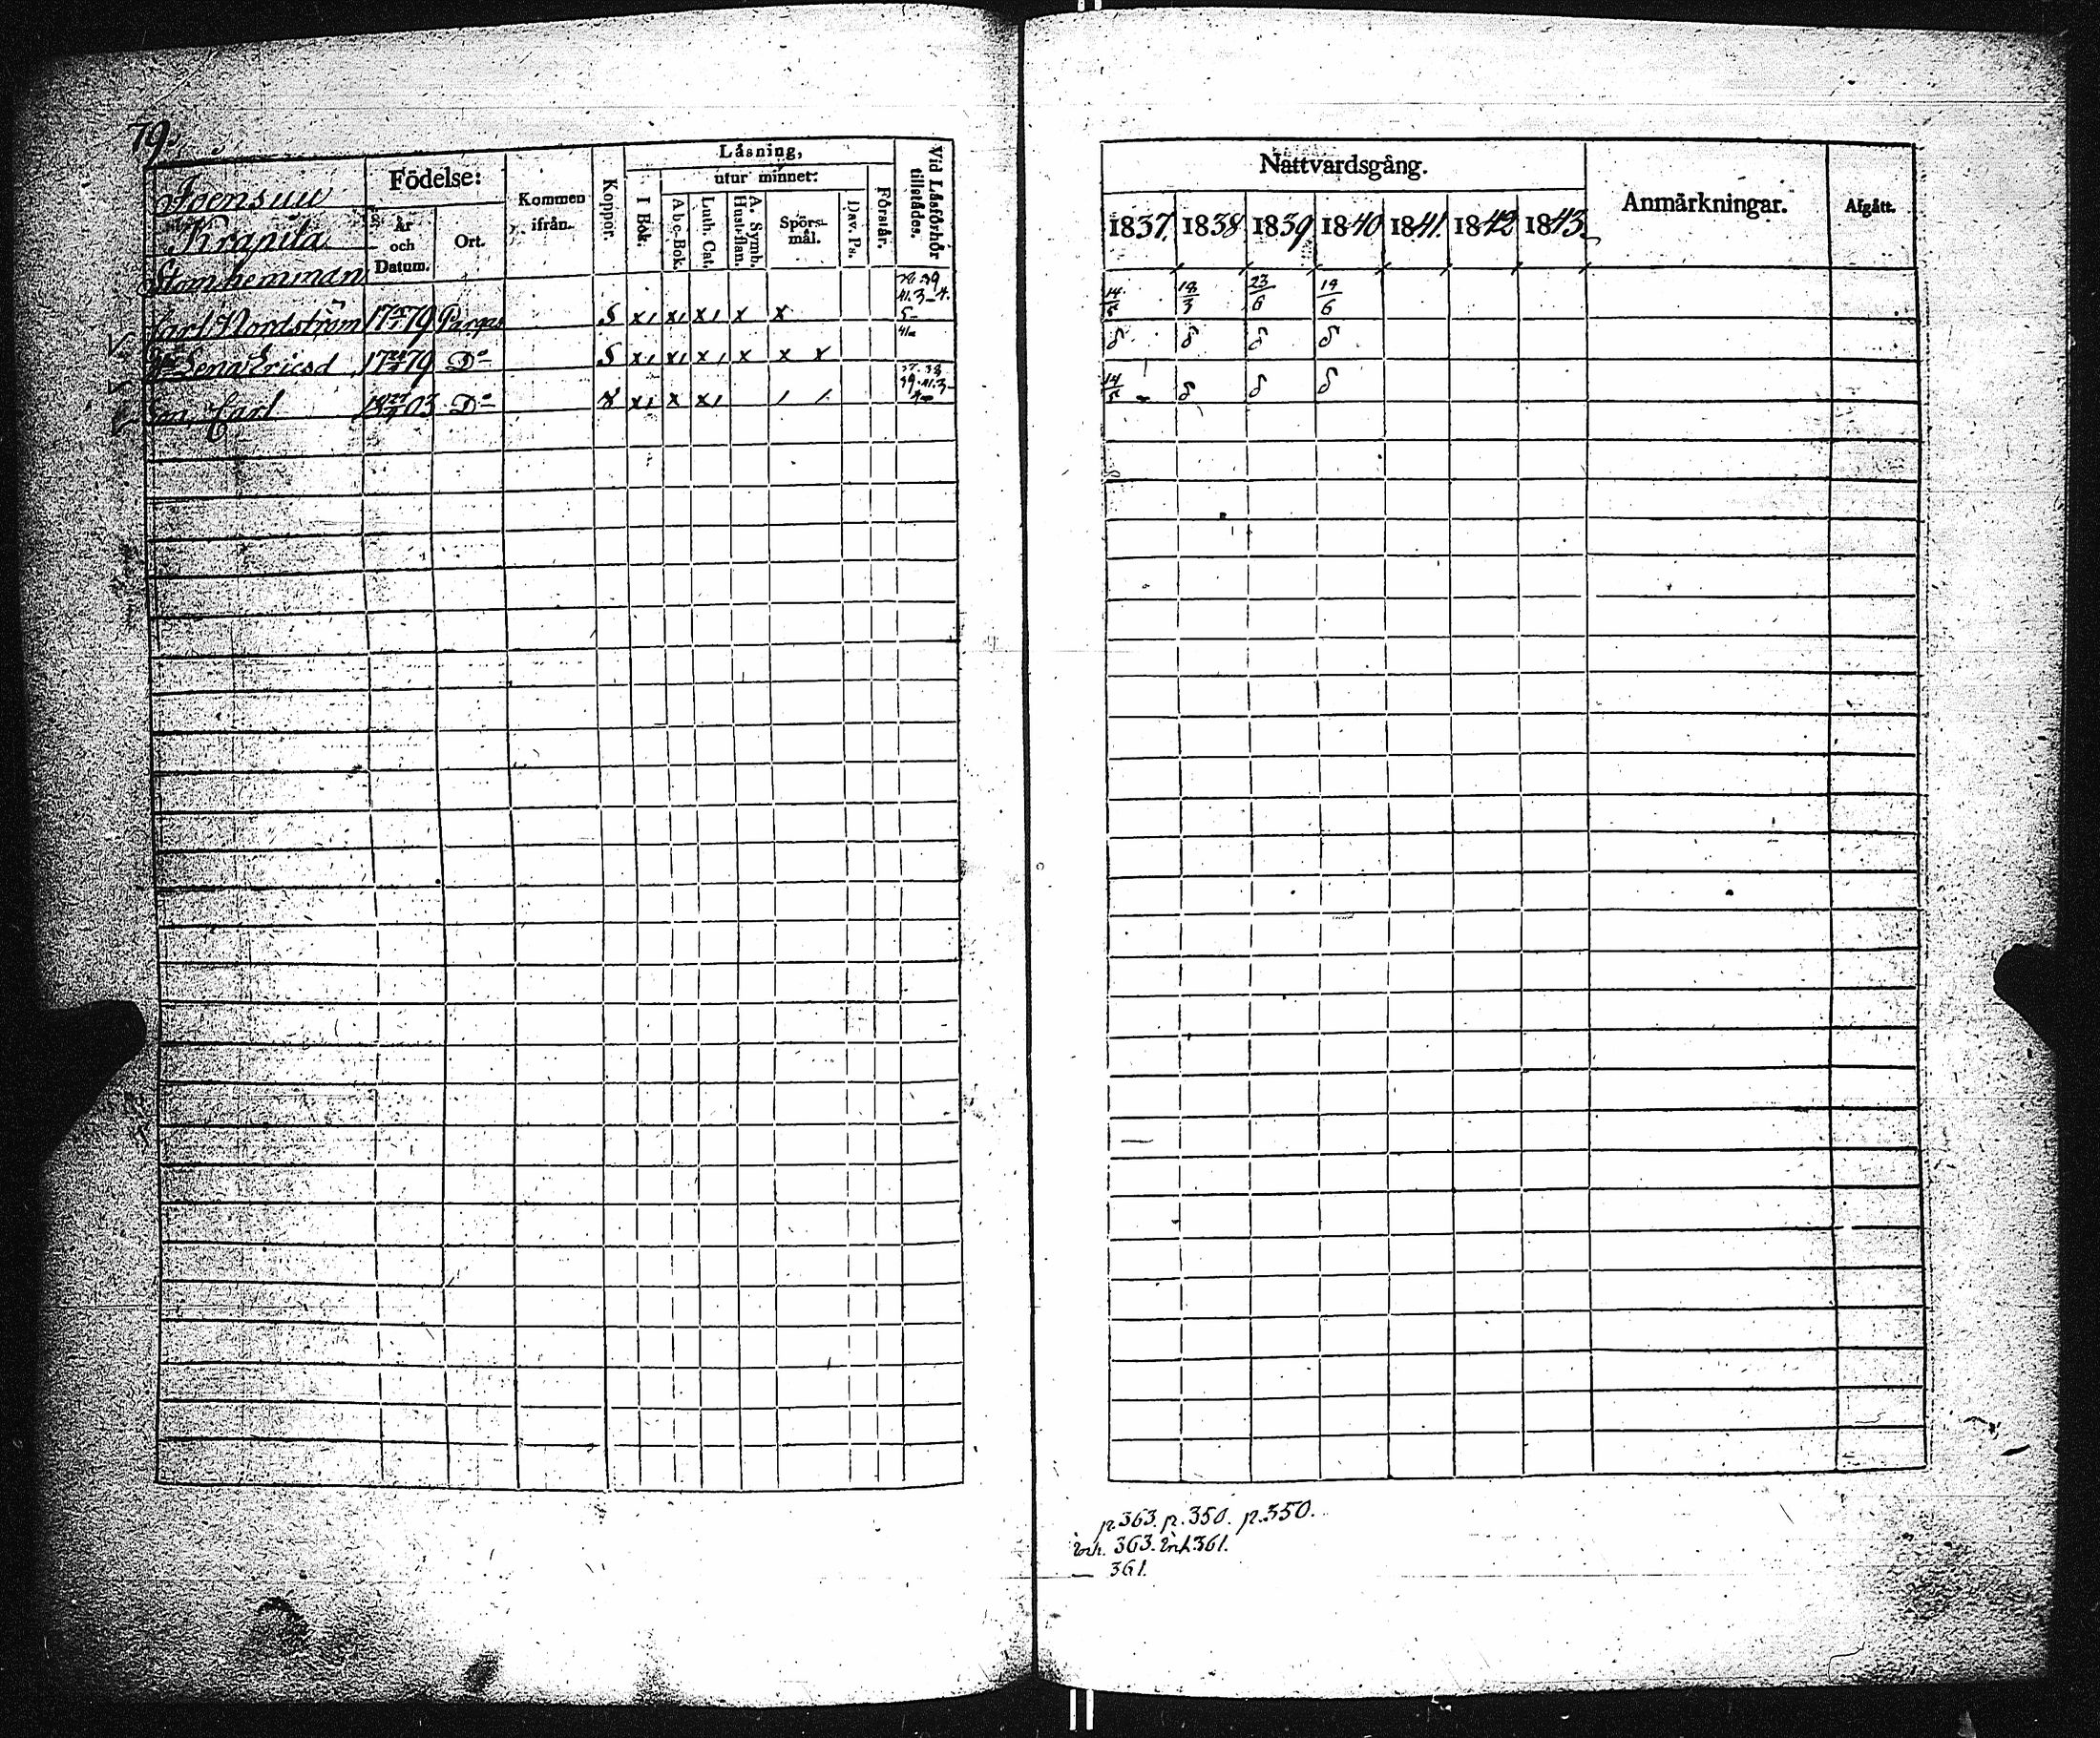 79.
Joensuu
Krapila
Stomhemman
Födelse:
År och Datum.
Ort.
Kommen ifrån.
Koppor.
Läsning,
utur minnet:
I Bok.
Abc-Bok.
Luth. Cat.
A. Symb. Hust-flan.
Spörs-mål.
Dav. Ps.
Förstår.
Vid Läsförhör tillstädes.
Carl Nordström 1779 Pargas S x x x x x
Lena Ericsd 1779 Do S x x x x x x 41
Carl 1803 Do x x x
Nattvardsgång.
1837. 1838. 1839 1840 1841. 1842 1843.
Anmärkningar.
Afgått.
18/3 23/6 19/6
p. 363. p. 350. p. 350.
363. 361.
— 361.